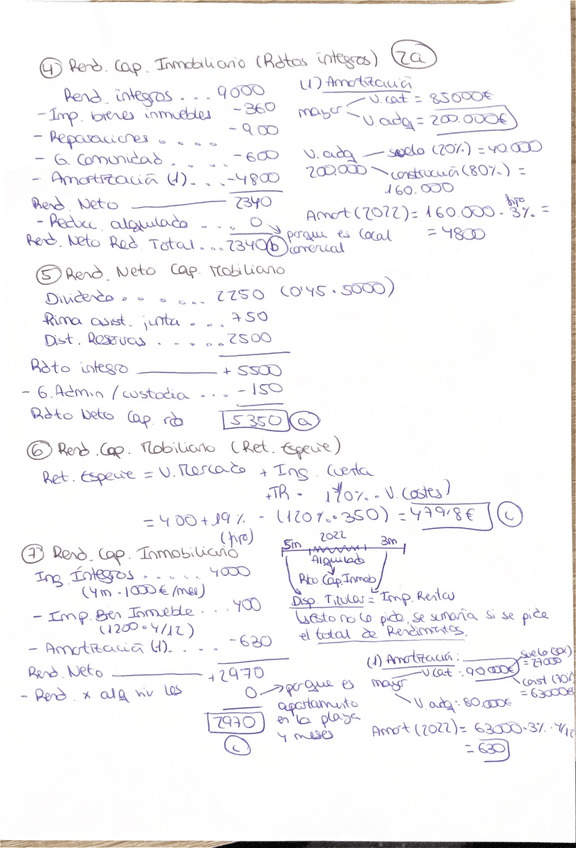 ④ Rend. Cap. Inmobiliario (Rdtos íntegros) 2a
Rend. íntegros ... 9000
- Imp. bienes inmuebles -360
- Reparaciones .... -900
- G. Comunidad .... -600
- Amortización (1) ... -4800
Rend. Neto 2340
- Reducc. alquilado ... 0 porque es local comercial
Rend. Neto Red. Total ... 2340 b
(1) Amortización
mayor V. cat = 85000€
V adq = 200.000€
V. adq 200.000 suelo (20%) = 40 000
construcción (80%) = 160.000
Amort (2022) = 160.000 · 3% =
= 4800
⑤ Rend. Neto Cap. Mobiliario
Dividendo .... 2250 (0'45 · 5000)
Prima asist. junta ... 750
Dist. Reservas ..... 2500
Rdto íntegro + 5500
- G. Admin / custodia ... -150
Rdto Neto Cap. 5350 a
⑥ Rend. Cap. Mobiliario (Ret. Especie)
Ret. Especie = V. Mercado + Ing. Cuenta
= 400 + 19% · (120% · 350) = 479'8€ c
⑦ Rend. Cap. Inmobiliario
Ing. Íntegros ..... 4000
(4m · 1000€/mes)
- Imp. Bien Inmueble ... 400
(1200 · 4/12)
- Amortización (1). ... -630
Rend. Neto +2970
- Rend. x alq viv 0 porque es apartamento en la playa 4 meses
2970
c
5m 2022 3m
Alquilado
Rto Cap. Inmob
Disp. Titular = Imp. Rentas
esto no lo pide, se sumaría si se pide
el total de Rendimientos.
(1) Amortización:
mayor V cat: 90 000€ suelo (30%) = 27000
const (70%) = 63000€
V adq: 80.000€
Amort (2022) = 63000 · 3% · 4/12
= 630